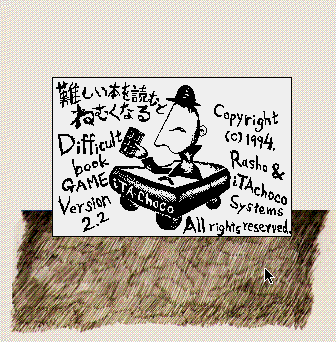 難しい本を読むと
ねむくなる
Difficult
book
GAME
Version
2.2
iTAchoco
Copyright
(C) 1994.
Rasho &
iTAchoco
Systems
All rights reserved.